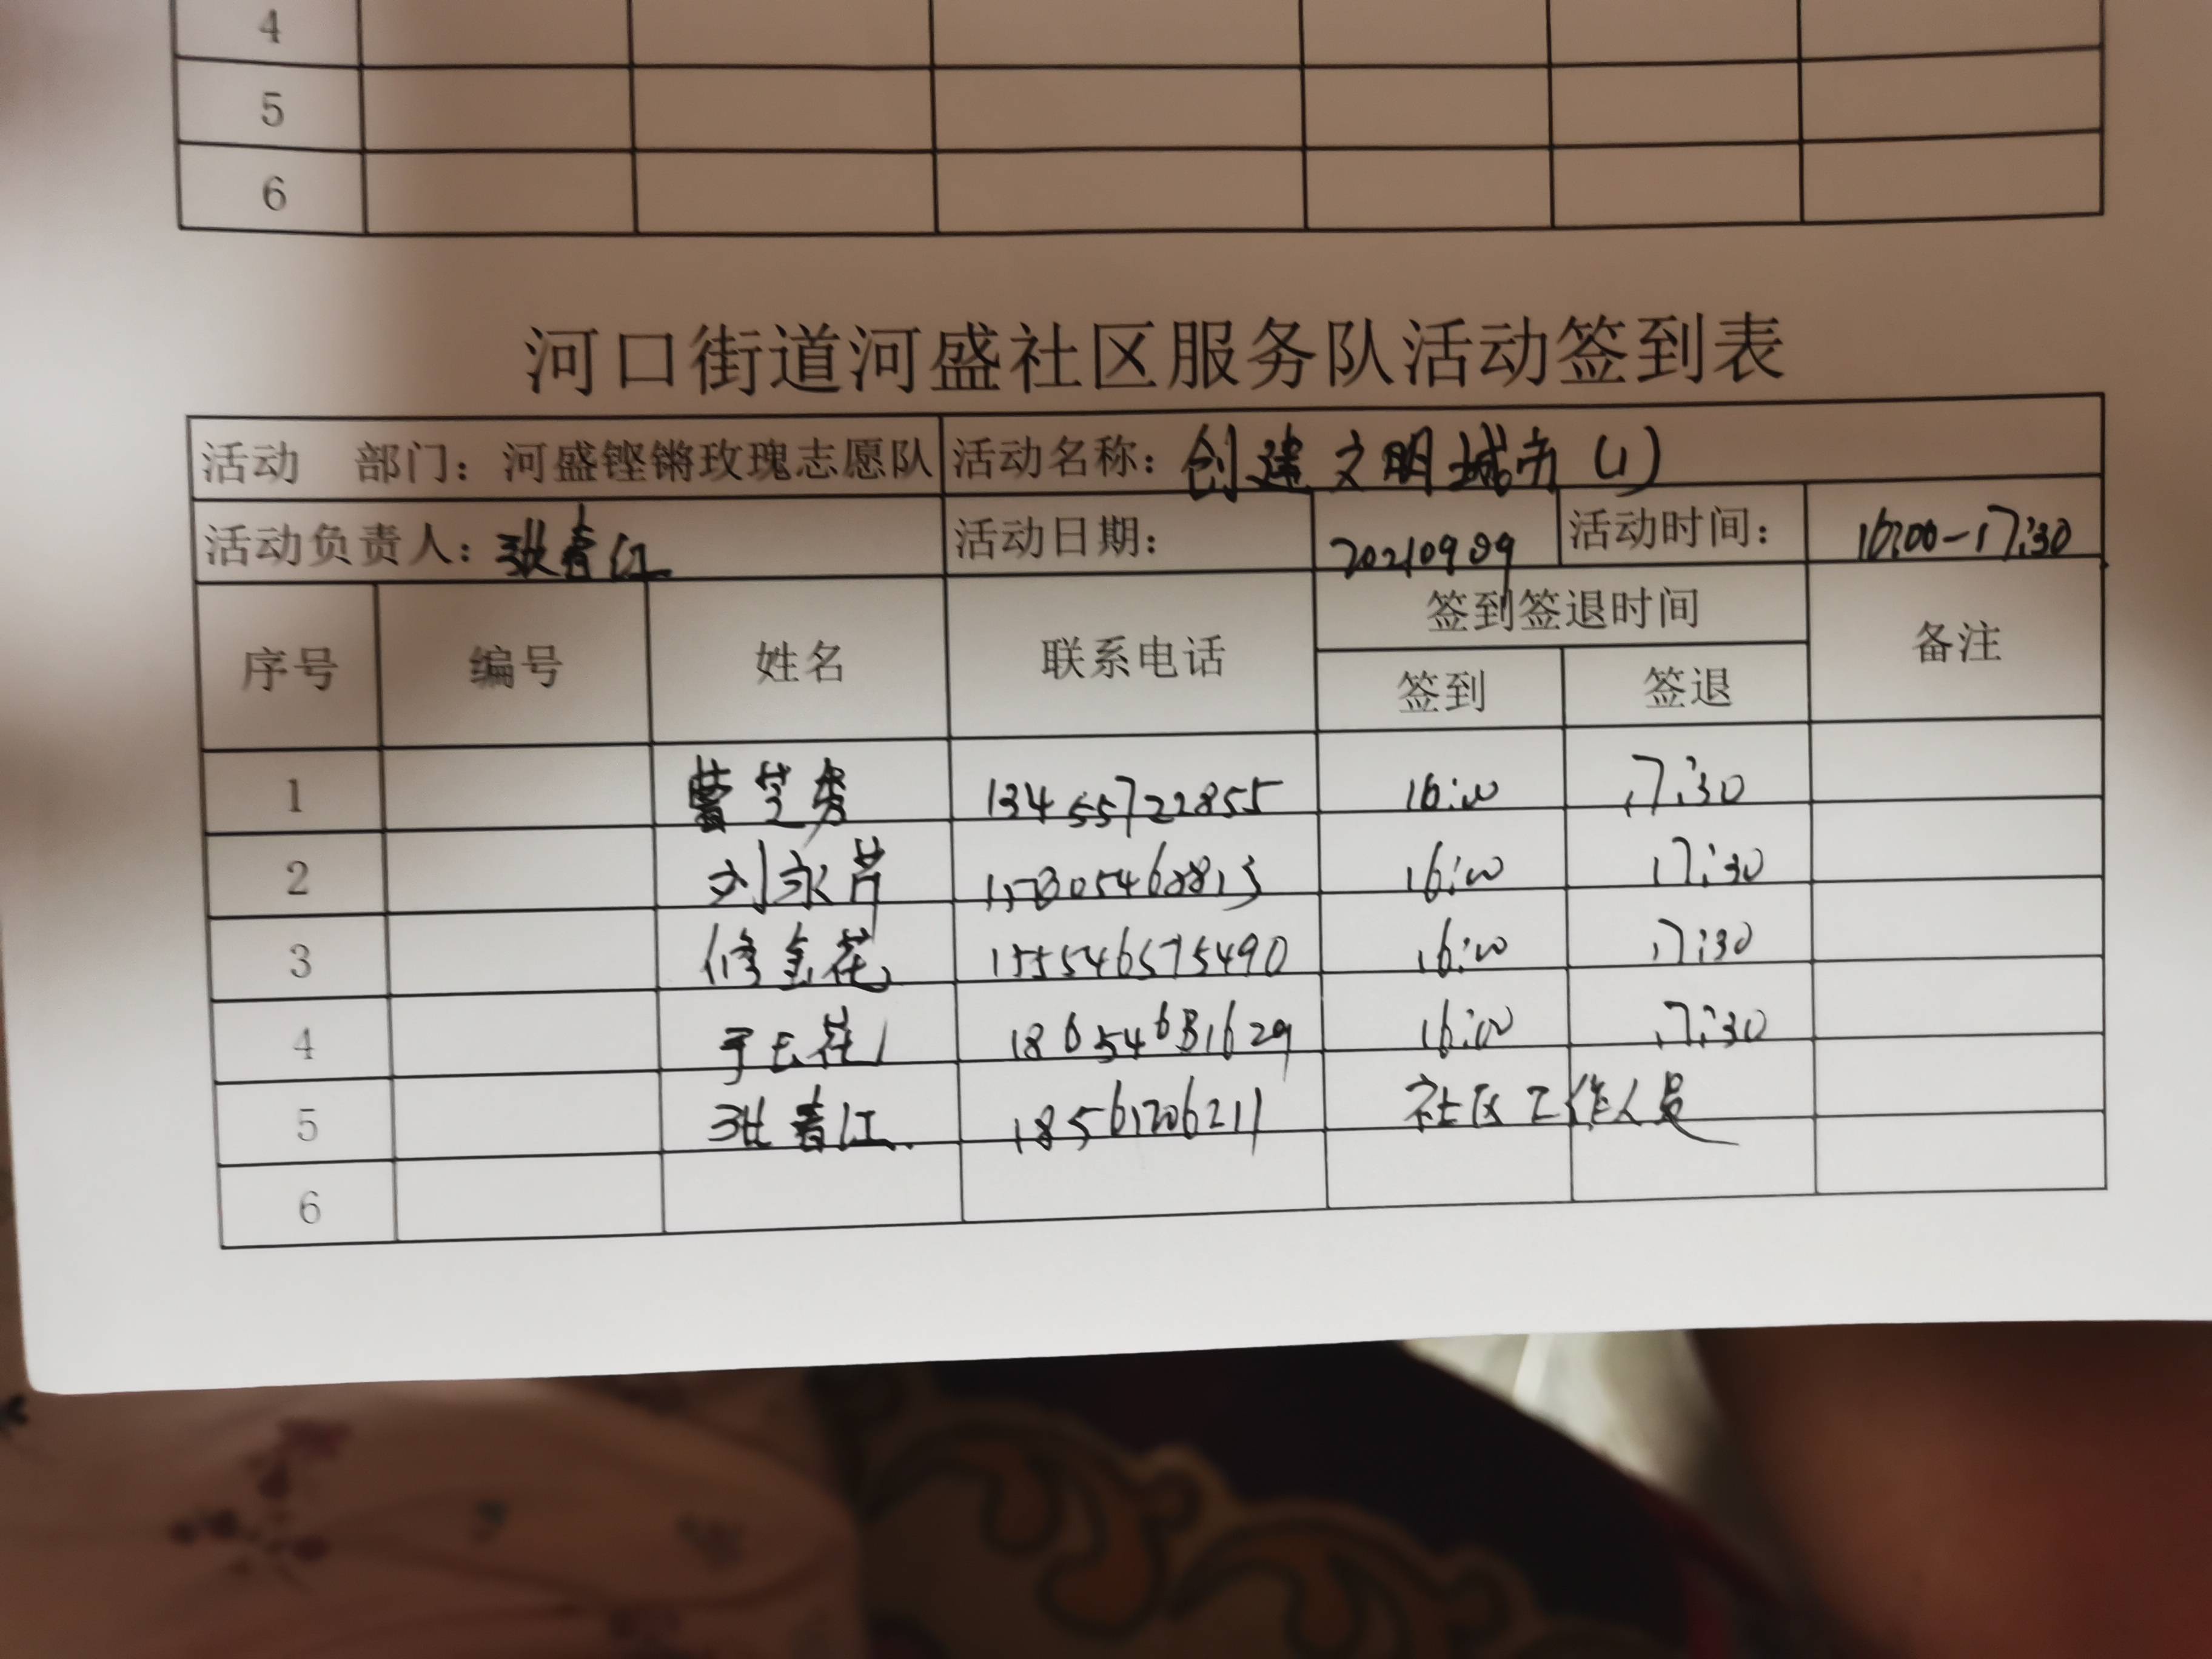 4
5
6
河口街道河盛社区服务队活动签到表
活动 部门：河盛铿锵玫瑰志愿队 活动名称：创建文明城市(1)
活动负责人：张春红 活动日期：20210909 活动时间：16:00-17:30
序号 编号 姓名 联系电话 签到签退时间 备注
签到 签退
1 13455722855 16:00 17:30
2 刘永芹 16:00 17:30
3 修金花 155546575490 16:00 17:30
4 18654631629 16:00 17:30
5 18561206211 社区工作人员
6